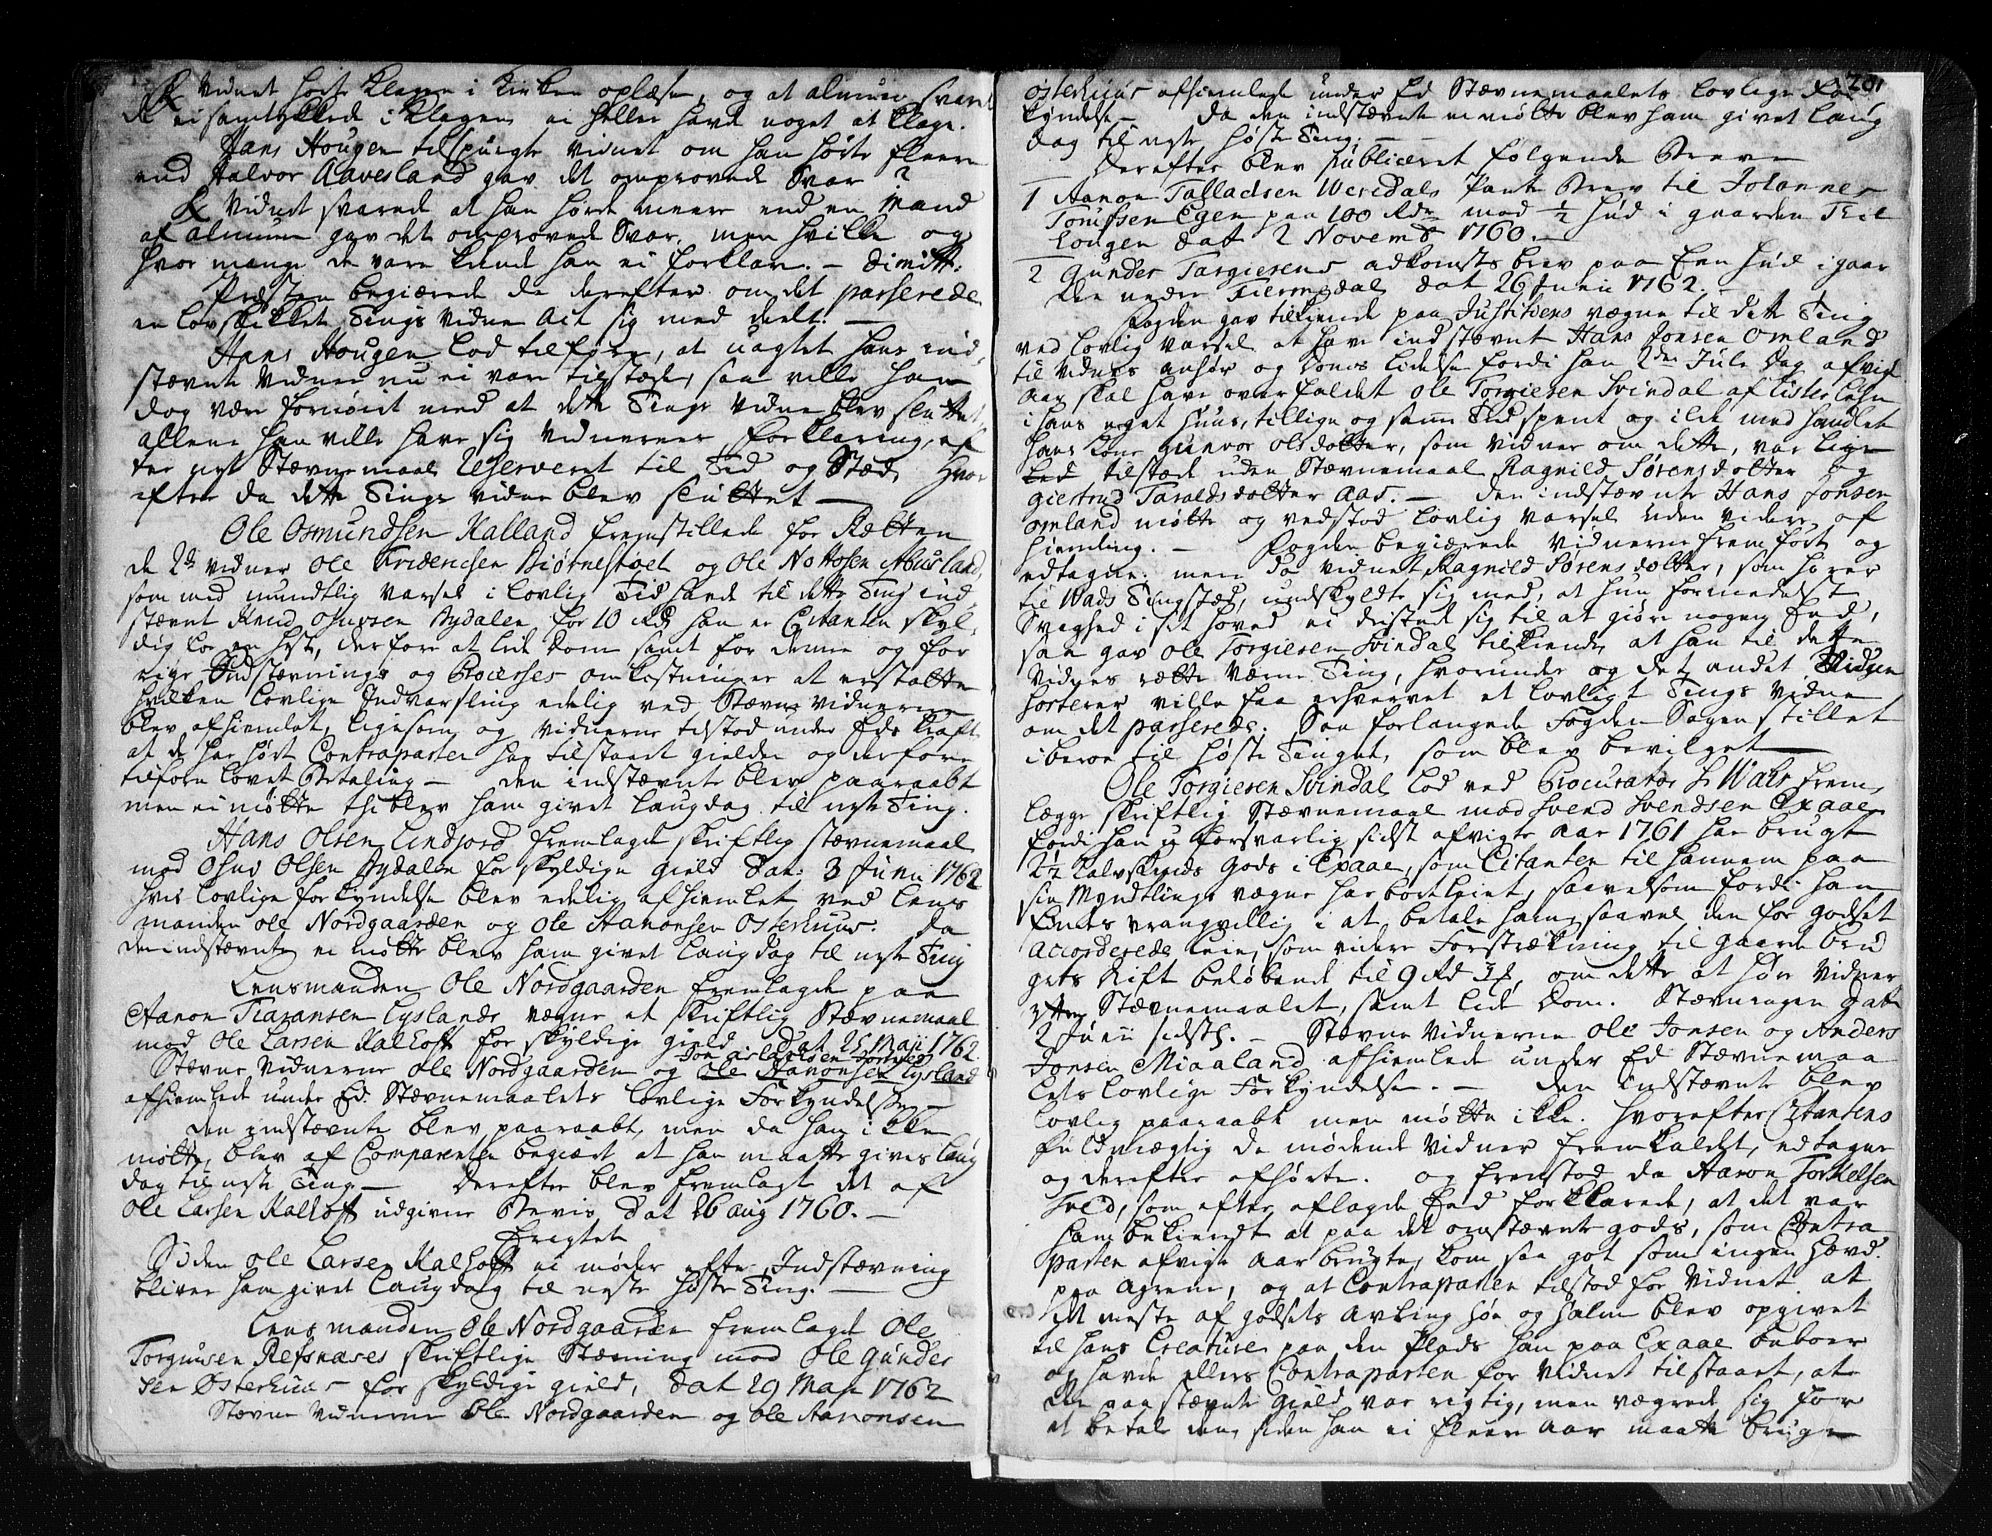 R Vidnet hørte Klagen i Kirken oplæse, og at almuen svarede
de ei samtykkede i Klagen ei heller havde noget at klage.
Hans Hougen tilspurgte Vidnet om han hørte fleere
end Halvor Aavesland gav det omprovede Svar?
R Vidnet svarede at han hørde meere end en Mand
af almuen gav det omprovede Svar, men hvilke og
hvor mange de vare kunde han ei forklare. – dimitt.
Præsten begiærede da derefter om det passerede
en lovskikket Tings Vidne Act sig meddeelt. –
Hans Hougen lod tilføre, at uagtet hans ind-
stævnte Vidner nu ei vare tilstæde, saa ville han
dog være fornøiet med at dette Tings Vidne blev sluttet
allene han ville have sig Vidnernes forklaring, ef
ter nyt Stævnemaal reserveret til Tid og Stæd, hvor
efter da dette Tings Vidne blev sluttet –
Ole Osmundsen Kalland fremstillede for Retten
de 2de vidner Ole Fridericsen Biørnestøel og Ole Nottosen Abusland,
som med mundtlig varsel i lovlig Tid havde til dette Ting ind-
stævnt Knud Osulvsen Dydalen for 10 Rd han er Citanten skyl-
dig for en Hest, derfore at lide Dom samt for denne og for
rige Indstævnings og Processes omkostninger at erstatte
hvilken lovlige Indvarsling edelig ved Stævne Vidnerne
blev afhiemlet, ligesom og Vidnerne tilstod under Eds kraft
at de har hørt Contraparten har tilstaaet gielden og derfore
tilforn lovet Betaling – den indstævnte blev paaraabt
men ei mødte thi blev ham givet Laugdag til neste Ting.
Hans Olsen Lindjord fremlagde skriftlig stævnemaal
mod Osuv Olsen Dydalen for skyldige gield Dat: 3 Junii 1762
hvis lovlige forkyndelse blev edelig afhiemlet ved Lens
manden Ole Nordgaarden og Ole Aanonsen Osterhuus. Da
den indstævnte ei mødte blev ham givet Laugdag til neste Ting
Lensmanden Ole Nordgaarden fremlagde paa
Aanon Taraldsen Lyslands vegne et skriftlig Stævnemaal
mod Ole Larsen Kalhoft for skyldige gield Dat 25 Maji 1762
Stævne Vidnerne Ole Nordgaarden og Ole Aanonsen Lysland
afhiemlede under Ed. Stævnemaalets lovlige Forkyndelse –
den indstævnte blev paaraabt, men da han ikke
mødte, blev af Comparenten begiært at han maatte gives laug
dag til neste Ting – Derefter blev fremlagt det af
Ole Larsen Kalhoft udgivne Beviis Dat 26 Aug 1760. –
Eragtet
Siden Ole Larsen Kalhoft ei møder efter Indstævning
bliver ham givet Laugdag til neste høste Ting. –
Lensmanden Ole Nordgaarden fremlagde Ole
Torgiusen Refsnæses skriftlige Stævning mod Ole Gunder
sen Østerhuus for skyldige gield, Dat 29 Maji 1762
Stævne Vidnerne Ole Nordgaarden og Ole Aanonsen
201
Osterhuus afhiemlede under Ed Stævnemaalets lovlige For
kyndelse – da den indstævnte ei mødte blev ham givet Laug
dag til neste høste Ting. –
Derefter blev publiceret følgende Breve
1 Aanon Talladsen Weredals Pante Brev til Johannes
Tonissen Egen paa 100 Rdr mod 1/2 hud i gaarden
Dat 2 Novembr 1760. –
2 Gunder Targiesens adkomsts brev paa Een hud i gaar
den nedre Fiermedal dat 26 Junii 1762. –
Fogden gav tilkiende paa Justitsens vægne til dette Ting
ved lovlig varsel at have indstævnt Hans Jonsen Omland
til Vidnes anhør og Doms lidelse fordi han 2den Jule Dag afvigt
Aar skal have overfaldet Ole Torgiesen Svindal af Lister Lehn
i hans eget huus, tillige og samme Tid spent og ilde med handlet
hans Kone Gunvor Olsdotter, som Vidner om dette, var lige
led tilstæde uden Stævnemaal Ragnild Sørensdotter og
Giertrud Taraldsdotter Aas. – Den indstævnte Hans Jonsen
Omland mødte og vedstod lovlig Varsel uden videre af
hiemling. – Fogden begiærede Vidnerne frem ført og
edtagne. men da Vidnet Ragnild Sørensdotter, som hører
til Wads Tingstæd, undskyldte sig med, at hun formedelst
Svaghed i sit hoved ei dristed sig til at giøre nogen Eed,
saa gav Ole Torgiesen Svindal tilkiende at han til dette
Vidnes rette Værne Ting, hvorunder og det andet Vidne
sorterer ville faa erhvervet et lovligt Tings Vidne
om det passerede. Saa forlangede Fogden Sagen stillet
i beroe til høste Tinget, som blev bevilget –
Ole Torgiesen Svindal lod ved Procurator Sr Wahs frem
lægge skriftlig Stævnemaal mod Svend Svendsen Exaae
fordi han u forsvarlig sidst afvigte Aar 1761 har brugt
2 1/2 Kalvskinds Gods i Exaae, som Citanten til hannem paa
sin Myndtlings vægne har bortleiet, saavelsom fordi han
findes vrangvillig i at betale ham saavel den for godset
accorderede leie, som videre Forstrækning til gaards brü
gets Rift beløbende til 9 Rd 3 β, om dette at høre Vidner
efter Stævnemaalet, samt lide Dom. Stævningen Dat
2 Junii sidstl. – Stævne Vidnerne Ole Jonsen og Anders
Jonsen Miaaland afhiemlede under Ed Stævnemaa
lets lovlige Forkyndelse. – Den indstævnte blev
lovlig paaraabt men mødte ikke. hvorefter Citantens
fuldmægtig de mødende Vidner fremkaldet, edtagne
og derefter afhørte. og fremstod da Aanon Torkelsen
Tved, som efter aflagde Eed forklarede, at det var
ham bekiendt at paa det omstævnte gods, som Contra
parten afvigte Aar brugte, kom saa got som ingen hævd
paa Agrene, og at Contraparten tilstod for Vidnet at
det meste af godsets avling høe og halm blev opgivet
til hans Creature paa den Plads han paa Exaae beboer
og havde ellers Contraparten for Vidnet tilstaaet, at
den paastævnte gield var rigtig, men vægrede sig for
at betale den, siden han ei fleere Aar maatte bruge